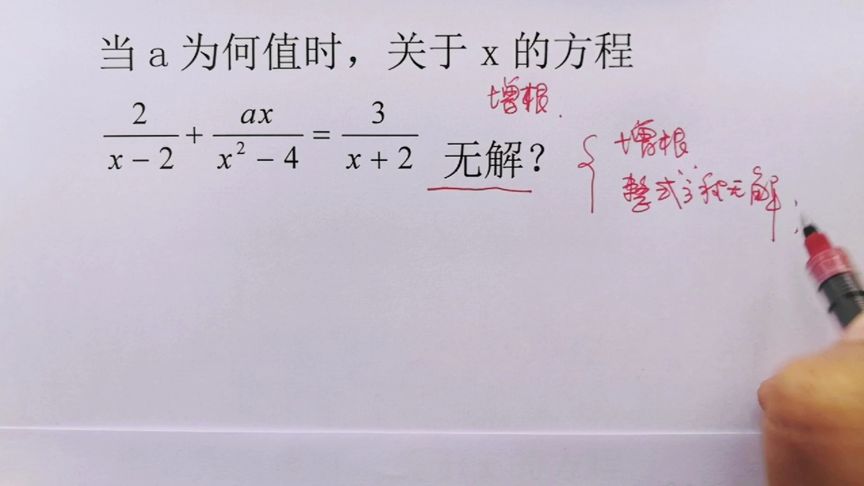 当 a 为何值时，关于 x 的方程
2/(x − 2) + ax/(x² − 4) = 3/(x + 2) 无解？
增根.
增根
整式方程无解